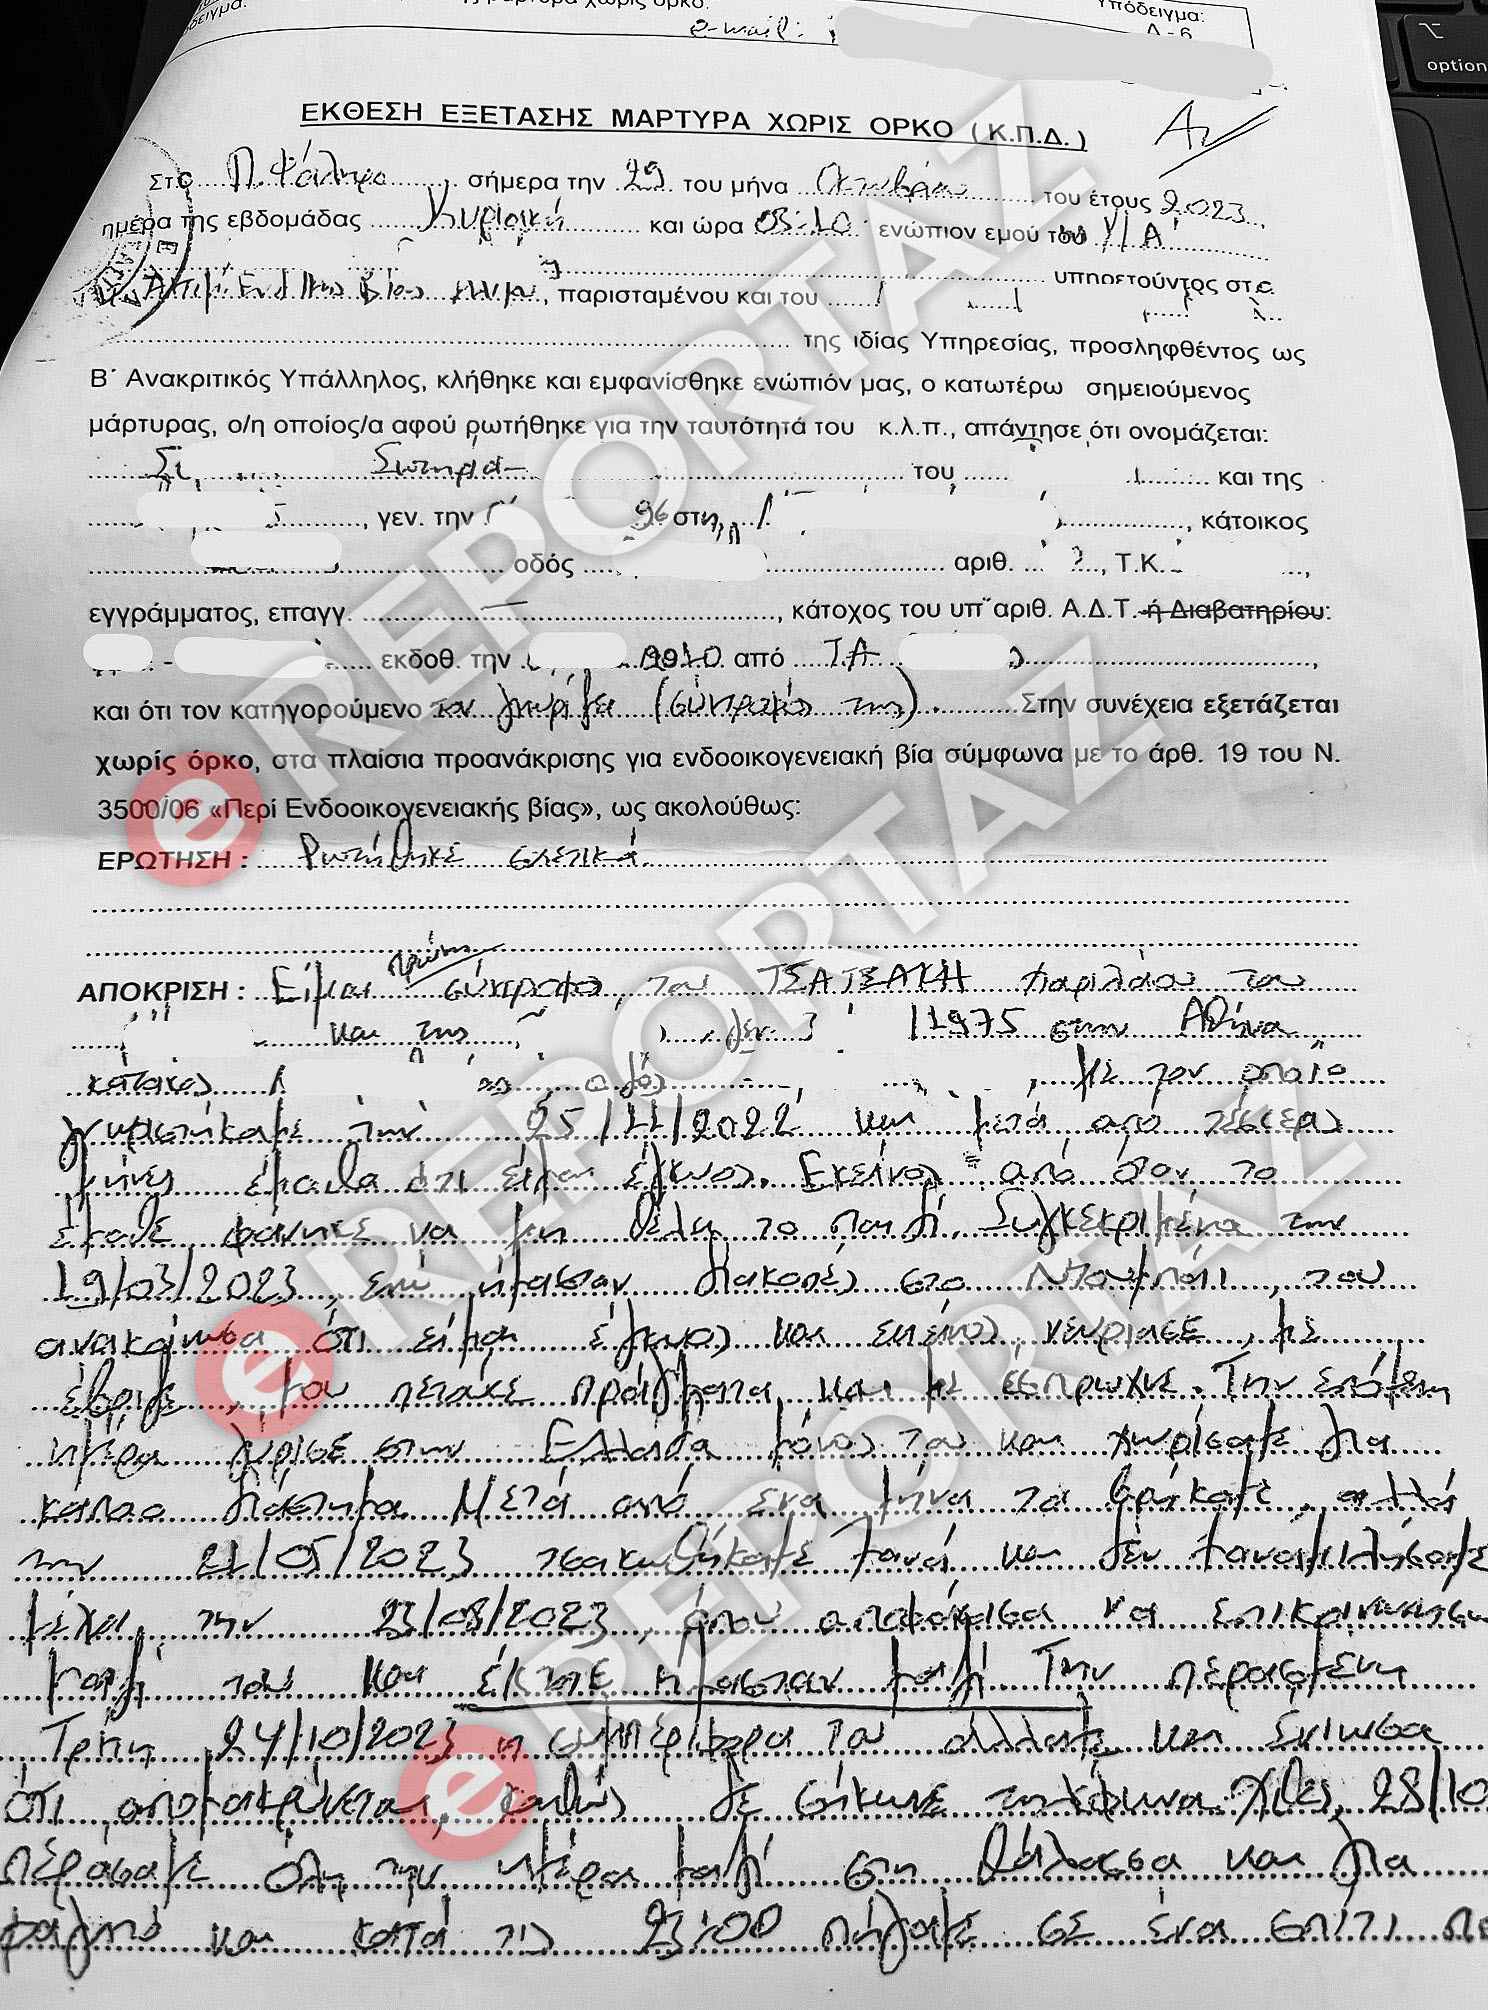 Υπόδειγμα:
Δ - 6
e-mail:
option
ΕΚΘΕΣΗ ΕΞΕΤΑΣΗΣ ΜΑΡΤΥΡΑ ΧΩΡΙΣ ΟΡΚΟ ( Κ.Π.Δ. )
Στο Π. Φάληρο σήμερα την 29 του μήνα Οκτωβρίου του έτους 2023
ημέρα της εβδομάδας Κυριακή και ώρα 03:10 ενώπιον εμού του Υ/Α
υπηρετούντος στο
παρισταμένου και του
της ιδίας Υπηρεσίας, προσληφθέντος ως
Β΄ Ανακριτικός Υπάλληλος, κλήθηκε και εμφανίσθηκε ενώπιόν μας, ο κατωτέρω σημειούμενος
μάρτυρας, ο/η οποίος/α αφού ρωτήθηκε για την ταυτότητά του κ.λ.π., απάντησε ότι ονομάζεται:
Σωτηρία του και της
, γεν. την 96 στη , κάτοικος
οδός αριθ. , Τ.Κ. ,
εγγράμματος, επαγγ. — , κάτοχος του υπ΄΄αριθ. Α.Δ.Τ. ή Διαβατηρίου:
εκδοθ. την 2010 από Τ.Α ,
και ότι τον κατηγορούμενο τον γνωρίζει (σύντροφός της). Στην συνέχεια εξετάζεται
χωρίς όρκο, στα πλαίσια προανάκρισης για ενδοοικογενειακή βία σύμφωνα με το άρθ. 19 του Ν.
3500/06 «Περί Ενδοοικογενειακής βίας», ως ακολούθως:
ΕΡΩΤΗΣΗ : Ρωτήθηκε σχετικά.
ΑΠΟΚΡΙΣΗ : Είμαι πρώην σύντροφος του ΤΣΑΤΣΑΚΗ Χαριλάου του
και της γεν. 1975 στην Αθήνα
κάτοικος οδός , με τον οποίο
γνωριστήκαμε την 25/11/2022 και μετά από τέσσερις
μήνες έμαθα ότι είμαι έγκυος. Εκείνος από όταν το
έμαθε φάνηκε να μη θέλει το παιδί. Συγκεκριμένα την
19/03/2023, ενώ ήμασταν διακοπές στο Ντουμπάι, του
ανακοίνωσα ότι είμαι έγκυος και εκείνος νευρίασε, με
έβριζε, μου πέταξε πράγματα και με έσπρωχνε. Την επόμενη
ημέρα γύρισε στην Ελλάδα μόνος του και χωρίσαμε για
κάποιο διάστημα. Μετά από ένα μήνα τα βρήκαμε, αλλά
την 21/05/2023 τσακωθήκαμε ξανά και δεν ξαναμιλήσαμε
μέχρι την 23/08/2023, όπου αποφάσισα να επικοινωνήσω
μαζί του και έκτοτε ήμασταν μαζί. Την περασμένη
Τρίτη 24/10/2023 η συμπεριφορά του άλλαξε και ένιωσα
ότι απομακρύνεται, καθώς δε σήκωνε τηλέφωνα. Χθες 28/10
περάσαμε όλη την ημέρα μαζί στη θάλασσα και για
φαγητό και κατά τις 23:00 πήγαμε σε ένα σπίτι
eREPORTAZ
eREPORTAZ
eREPORTAZ